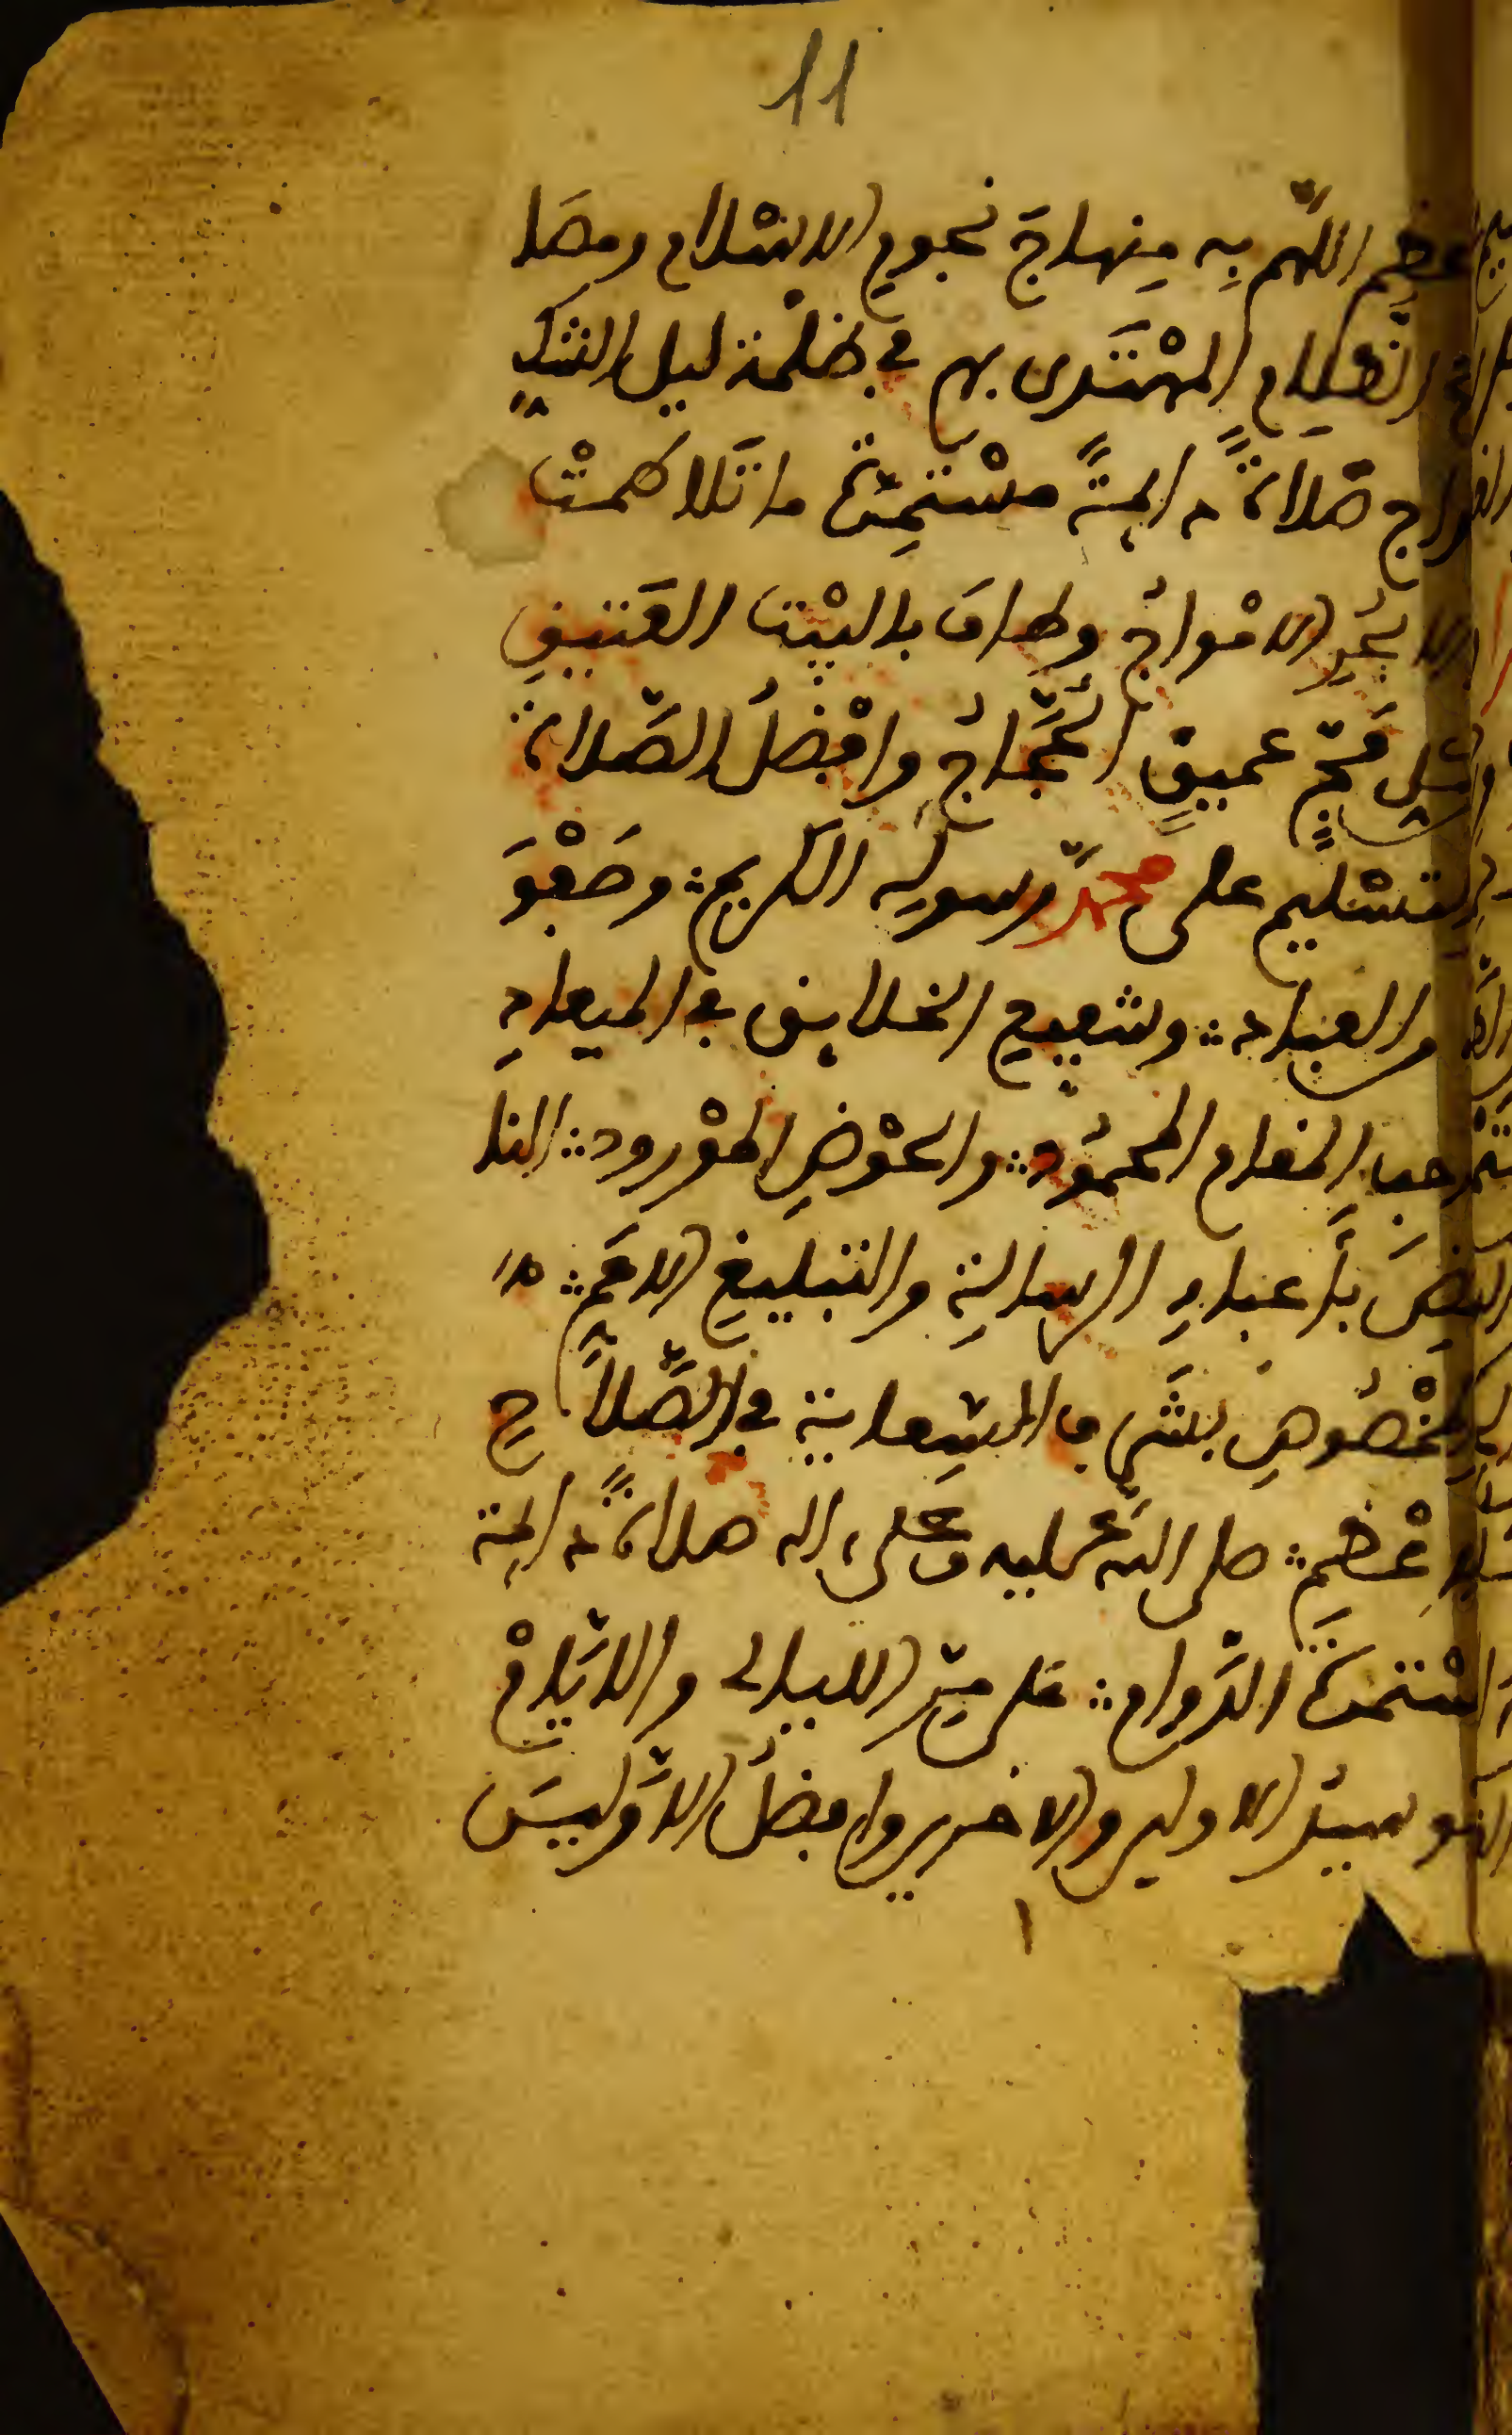 11
عظم اللهم بِه مِنهاجَ نجومِ الاسْلام ومصَا
المهْتَدى بهم في ظلْمة ليل الشكِ
داج صَلَاةً دائمةً مسْتمِرّةً ما تَلَاطمتْ
الابْحُرِ الامْواجُ وطافَ بالبيْت العَتيقِ
مِن كل فجّ عميقٍ الحُجّاجُ وافْضلُ الصّلاة
والتسْليم على محمدٍ رسولِه الكريم وصَفْوَ
العباد وشفيع الخلايق في الميعادِ
صاحب المقام المحمُود والحوْضِ المورود النا
هضَ بأعباءِ الرسالةِ والتبليغِ الاعَمّ
والمخْصُوصِ بشَرف السِعاية في الصَّلَاحِ
الاعْظم صلى اللهُ عليه وَعَلى اله صلاةً دائمة
مسْتمرّةَ الدَّوام على مرّ الليالى والايّامْ
سيدُ الاولين والاخرين وافضلُ الاوَّليِنَ